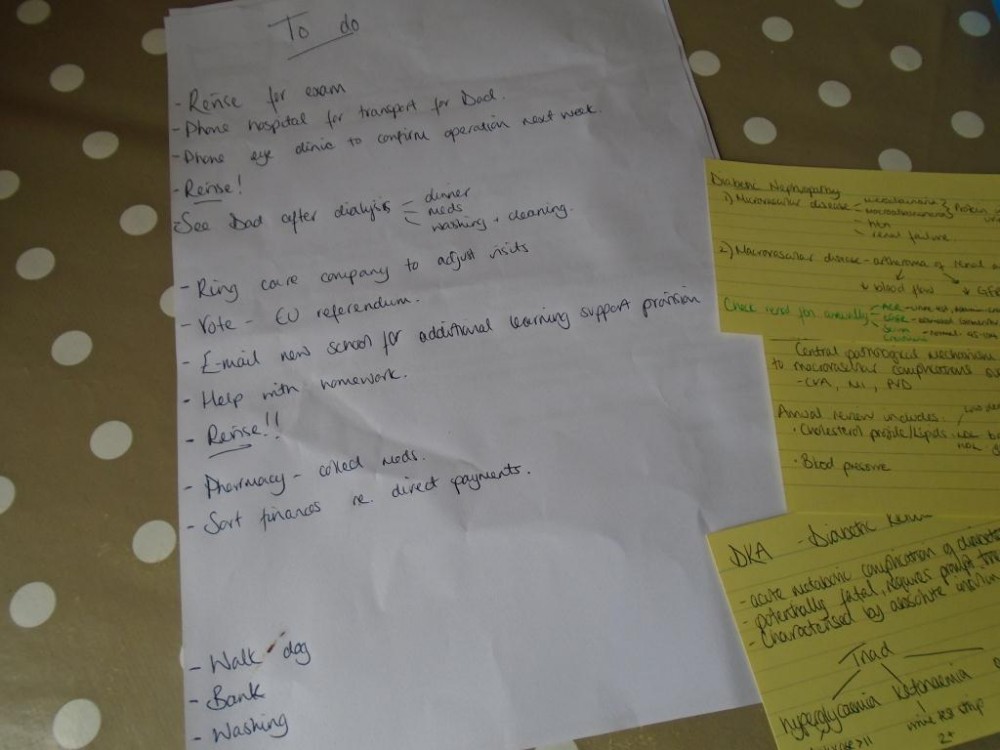 To do
- Revise for exam
- Phone hospital for transport for Dad.
- Phone eye clinic to confirm operation next week.
- Revise!
- See Dad after dialysis - dinner
- meds
- washing + cleaning.
- Ring care company to adjust visits
- Vote - EU referendum.
- E-mail new school for additional learning support provision
- Help with homework.
- Revise!!
- Pharmacy - collect meds.
- Sort finances re. direct payments.
- Walk dog
- Bank
- Washing
Diabetic Nephropathy
1) Microvascular disease - microalbuminuria } Protein
- macroalbuminuria }
- htn
- renal failure.
2) Macrovascular disease - atheroma of renal
↓ blood flow ↓ GFR
Check renal fxn annually - ACR
Serum
creatinine
Central pathological mechanism
to macrovascular complications
- CVA, MI, PVD
Annual review includes.
• Cholesterol profile/lipids
• Blood pressure
DKA - Diabetic
- acute metabolic complication of diabetes
- potentially fatal, requires prompt
- Characterised by absolute insulin
Triad
hyperglycaemia ketonaemia
urine strip
2+